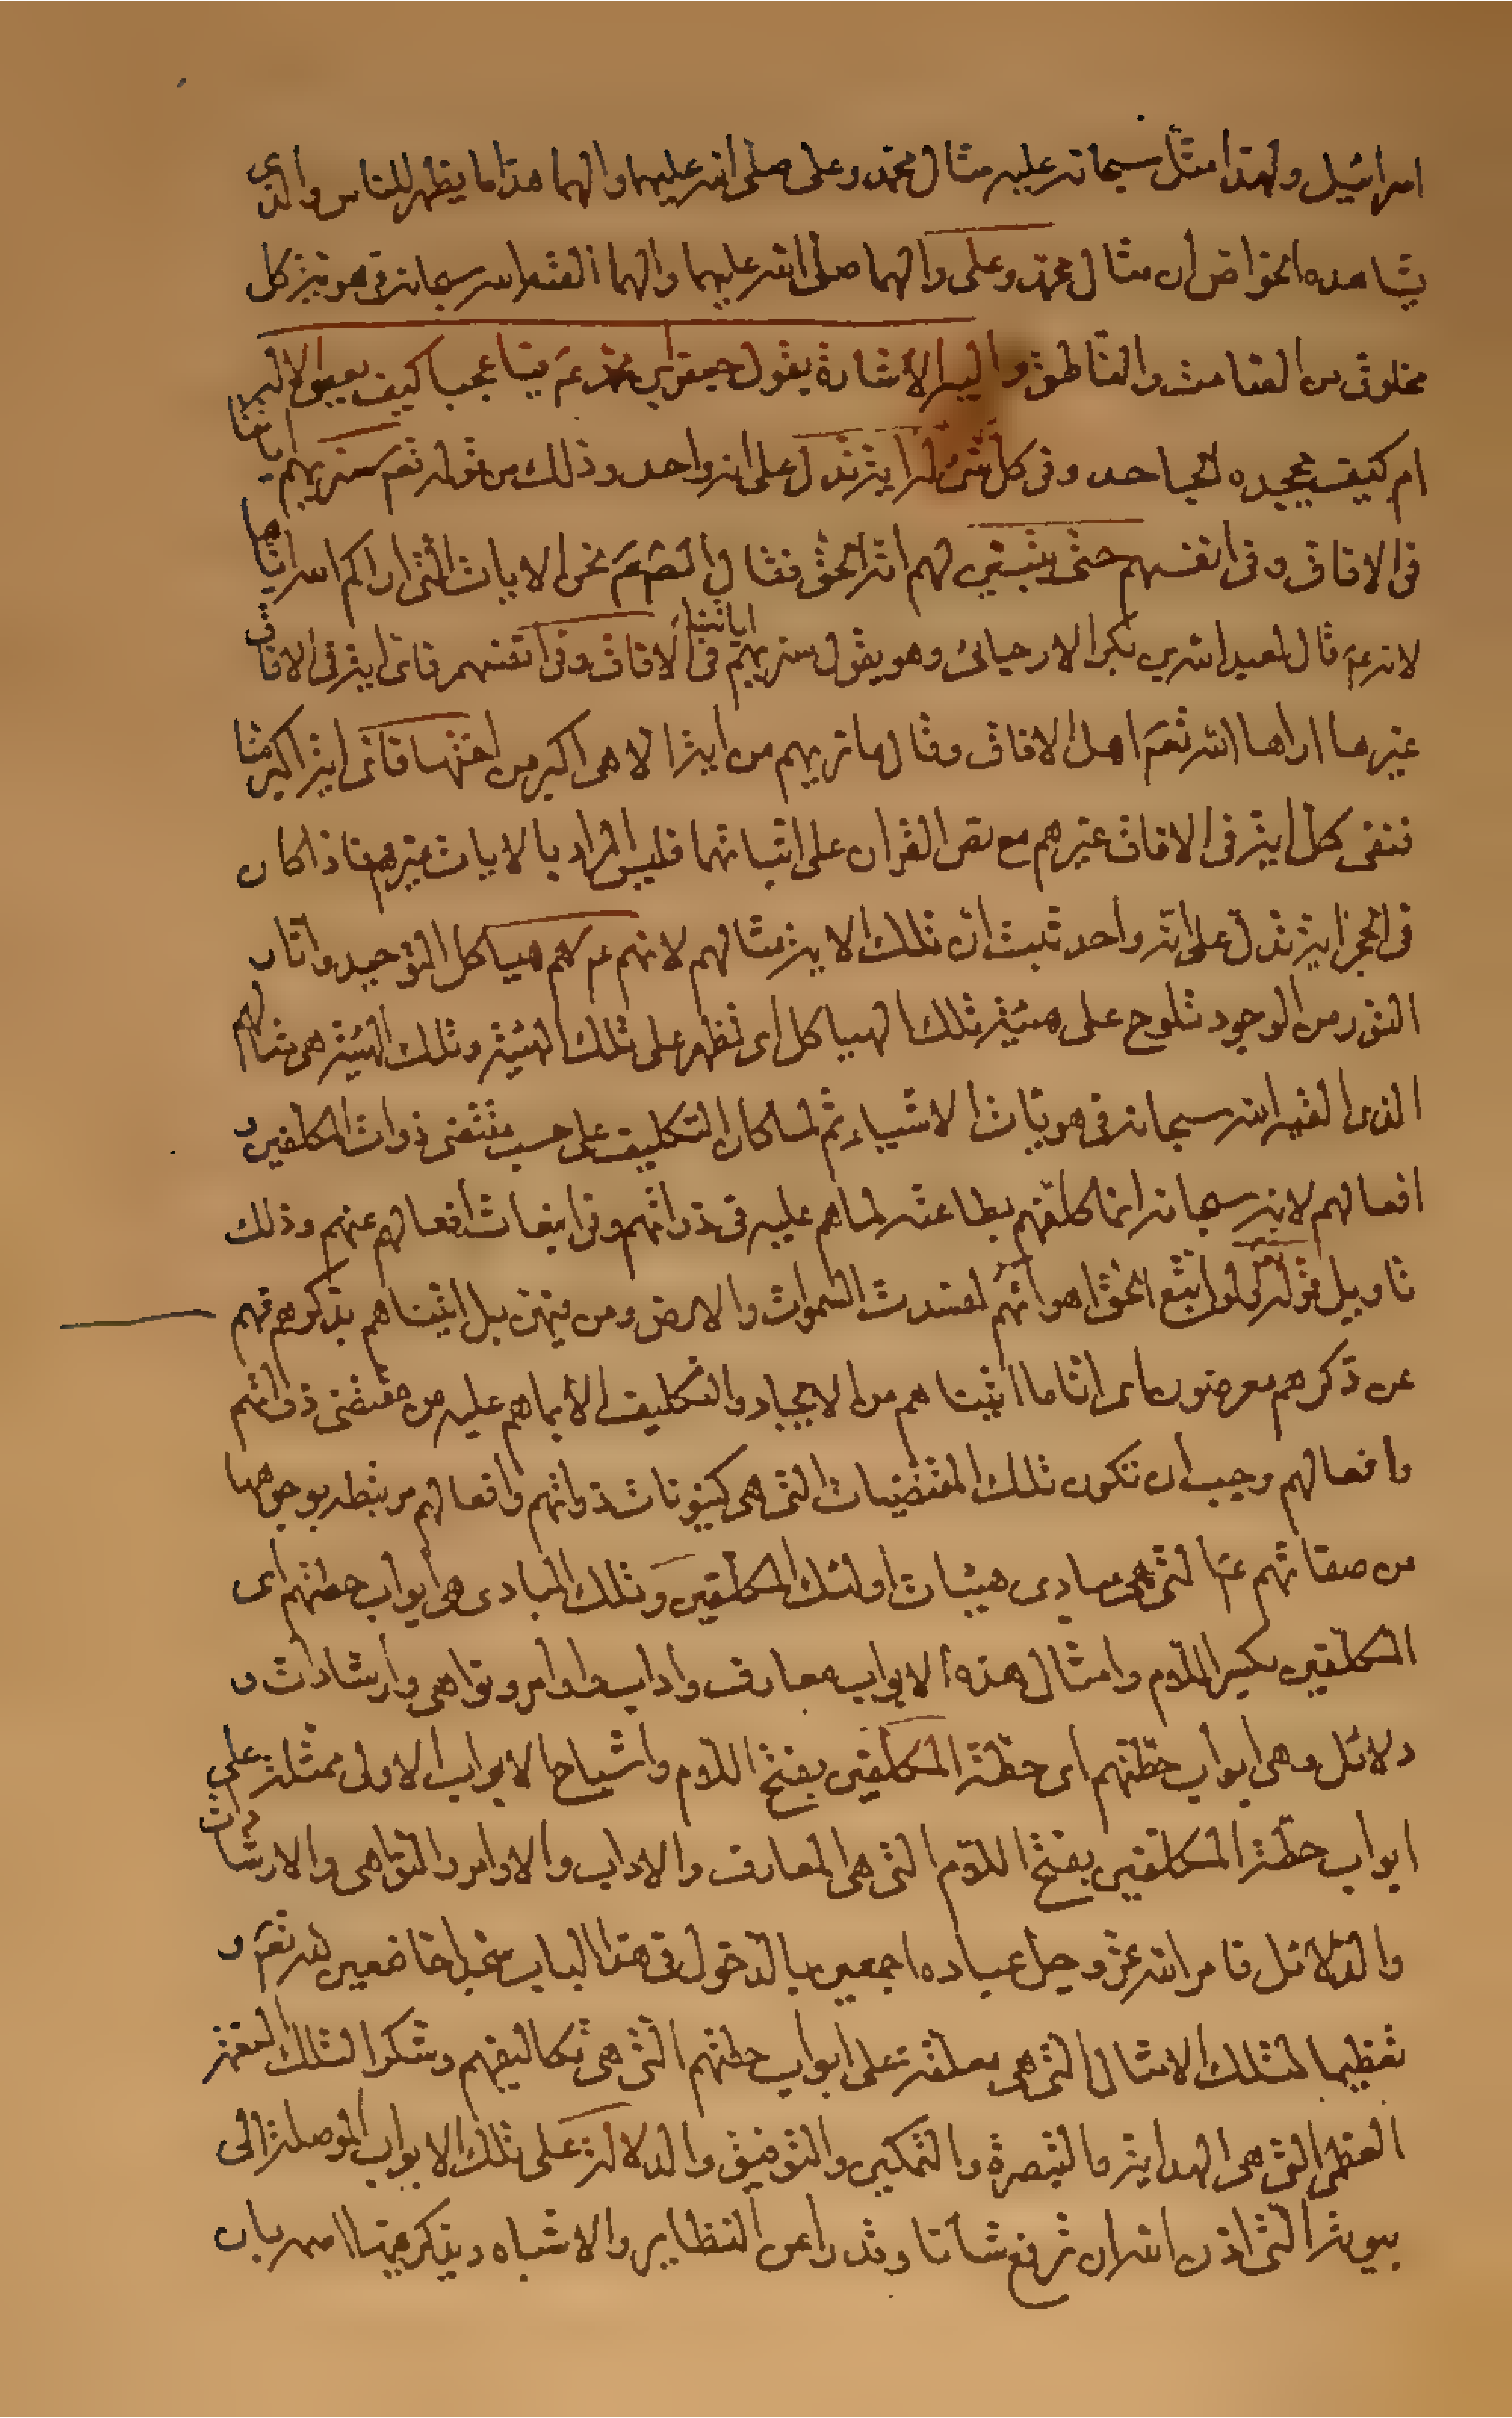 اسرائيل ولهذا مثل سبحانه عليه مثال محمد وعلى صلى الله عليهما والهما هذا ما يظهر للناس والذى
يشاهده الخواص ان مثال محمد وعلى والهما صلى الله عليهما والهما القاه الله سبحانه فى هوية كل
مخلوق من الصامت والناطق واليه الاشارة بقول جعفر بن محمد عم فيا عجبا كيف يعصى الاله
ام كيف يجحده الجاحد وفى كل شئ له اية تدل على انه واحد وذلك من قوله تعم سنريهم اياتنا
فى الافاق وفى انفسهم حتى يتبين لهم انه الحق فقال الصم عم نحن الايات التى اراكم الله اياها
لانه عم قال لعبد الله بن بكر الارجانى وهو يقول سنريهم اياتنا فى الافاق وفى انفسهم فاى اية فى الافاق
غيرها اراها الله تعم اهل الافاق وقال ما نريهم من اية الا هى اكبر من اختها فاى اية اكبر منا
فنفى كل اية فى الافاق غيرهم مع نص القران على اثباتها فليس المراد بالايات غيرهم فاذا كان
فى الحجر اية تدل على انه واحد ثبت ان تلك الاية مثالهم لانهم عم هم هياكل التوحيد واثار
النور من الوجود تلوح على هيئة تلك الهياكل اى تظهر على تلك الهيئة وتلك الهيئة هى مثالهم
الذى القيه الله سبحانه فى هويات الاشياء ثم لما كان التكليف على حسب مقتضى ذوات المكلفين و
افعالهم لانه سبحانه انما كلفهم بطاعته لما هم عليه فى ذواتهم وفى انبعاث افعالهم عنهم وذلك
تاويل قوله تعم ولو اتبع الحق اهوائهم لفسدت السموات والارض ومن فيهن بل اتيناهم بذكرهم فهم
عن ذكرهم معرضون اى انا ما اتيناهم من الايجاد والتكليف الا بما هم عليه من مقتضى ذواتهم
وافعالهم وجب ان تكون تلك المقتضيات التى هى كينونات ذواتهم وافعالهم مرتبطه بوجوهها
من صفاتهم عم التى هى مبادى هيئات اولئك المكلفين وتلك المبادى هى ابواب حطتهم اى
المكلفين بكسر اللام وامثال هذه الابواب معارف واداب واوامر ونواهى وارشادات و
دلائل وهى ابواب حطتهم اى حطة المكلفين بفتح اللام واشباح الابواب الاولى ممثلة على
ابواب حطة المكلفين بفتح اللام التى هى المعارف والاداب والاوامر والنواهى والارشادات
والدلائل فامر الله عز وجل عباده اجمعين بالدخول فى هذا الباب سجدا خاضعين لله تعم و
تعظيما لتلك الامثال التى هى معلقة على ابواب حطتهم التى هى تكاليفهم وشكرا لتلك النعمة
العظمى التى هى الهداية والتبصرة والتمكين والتوفيق والدلالة على تلك الابواب الموصلة الى
بيوته التى اذن الله ان ترفع شانا وقدرا عن النظاير والاشباه ويذكر فيها اسمه بان